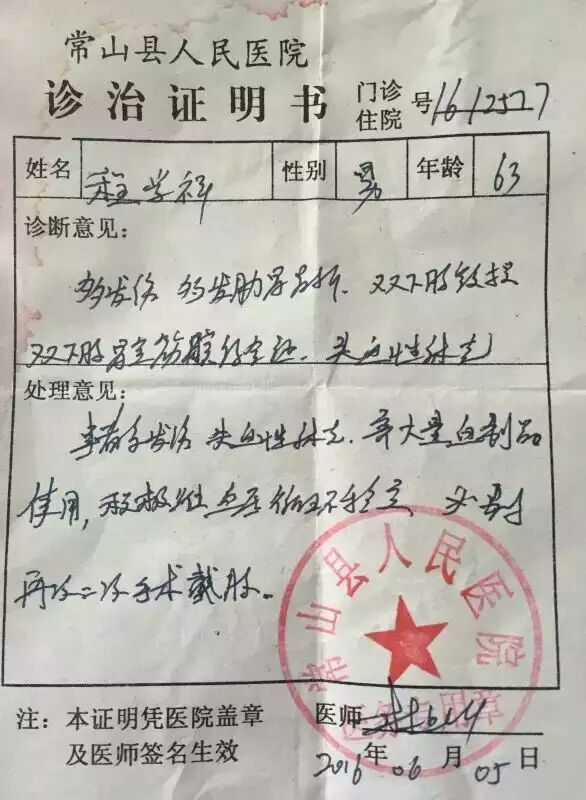 常山县人民医院
诊治证明书 门诊 住院 号 1612527
姓名 程学科 性别 男 年龄 63
诊断意见：
多发伤 多发肋骨骨折. 双下肢毁损
双下肢骨室筋膜综合征. 失血性休克
处理意见：
患者多发伤 失血性休克. 予大量血制品
使用, 积极 血压仍不稳定, 必要时
再次二次手术截肢。
常山县人民医院
医务专用章
注：本证明凭医院盖章 医师
及医师签名生效 2016年06月05日